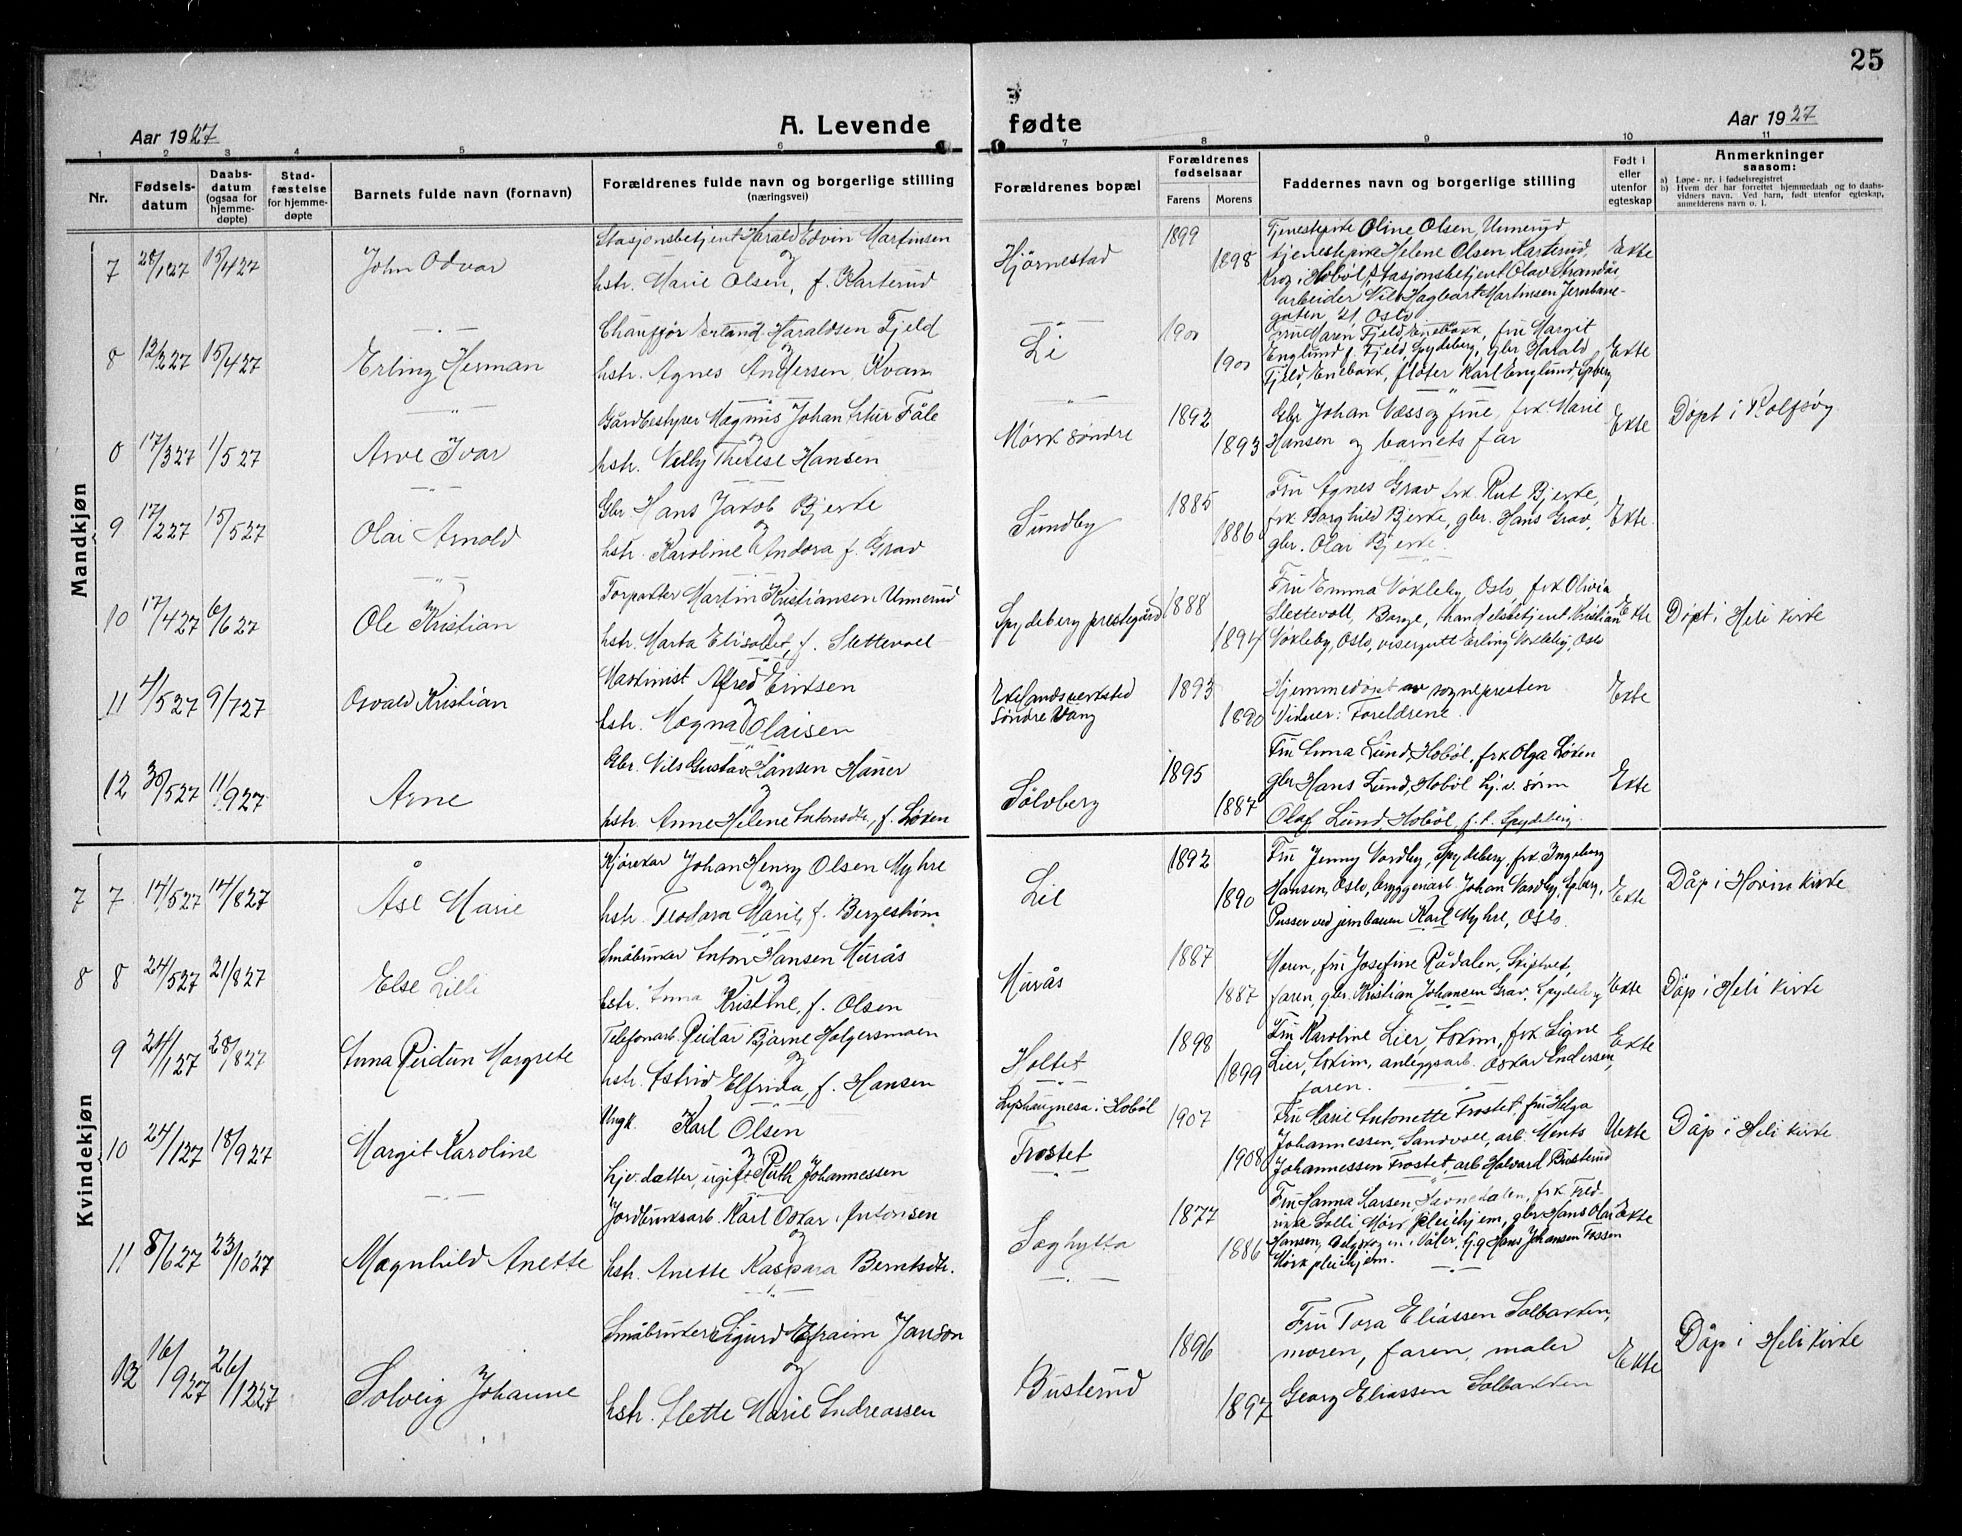 25
Aar 1927
A. Levende
fødte
Aar 1927
1 2 3 4 5 6 7 8 9 10 11
Nr.
Fødsels-
datum
Daabs-
datum
(ogsaa for
hjemme-
døpte)
Stad-
fæstelse
for hjemme-
døpte
Barnets fulde navn (fornavn)
Forældrenes fulde navn og borgerlige stilling
(næringsvei)
Forældrenes bopæl
Forældrenes
fødselsaar
Farens Morens
Faddernes navn og borgerlige stilling
Født i
eller
utenfor
egteskap
Anmerkninger
saasom:
a) Løpe-nr. i fødselsregistret
b) Hvem der har forrettet hjemmedaab og to daabs-
vidners navn. Ved barn, født utenfor egteskap,
anmelderens navn o. l.
Mandkjøn
7 15/4 27 John Odvar
Stasjonsbetjent Harald Edvin Martinsen
og
hstr. Marie Olsen, f. Karterud
Hjørnestad
1899
1898
Tjenestepike Oline Olsen, Unnerud
tjenestepike Helene Olsen Karterud,
Krog i Hobøl, stasjonsbetjent Olav Strandås
arbeider Nils Hagbart Martinsen Jernbane-
gaten 21 Oslo
Ekte
8 15/4 27 Erling Herman
Chauffør Erland Haraldsen Fjeld
og
hstr. Agnes Andersen Kvam
Li
1900
1900
Fru Maren Fjeld, Enebakk, fru Margit
Englund f. Fjeld, Spydeberg, gbr Harald
Fjeld, Enebakk, fløter Karl Englund, Spberg
Ekte
0 17/3 27 1/5 27 Arve Ivar
Gårdbestyrer Magnus Johan Artur Fåle
og
hstr. Nelly Therese Hansen
Mørk søndre
1892
1893
Gbr Johan Næss og frue, frk Marie
Hansen og barnets far
Ekte
Døpt i Rolfsøy
9 17/2 27 15/5 27 Olai Arnold
Gbr Hans Jakob Bjerke
og
hstr. Karoline Andora f. Grav
Sundby
1885
1886
Fru Agnes Grav frk. Rut Bjerke,
frk Borghild Bjerke, gbr. Hans Grav,
gbr. Olai Bjerke
Ekte
10 17/4 27 6/6 27 Ole Kristian
Forpakter Martin Kristiansen Unnerud
og
hstr. Marta Elisabet, f. Slettevoll
Spydeberg prestegård
1888
1894
Fru Emma Voxleby Oslo, frk Olivia
Slettevoll, Borge, handelsbetjent Kristian
Voxleby, Oslo, visergutt Erling Voxleby, Oslo
Ekte
Døpt i Heli kirke
11 4/5 27 9/7 27 Osvald Kristian
Maskinist Alfred Eriksen
og
hstr. Magna Olaisen
søndre Vang
1893
1890
Hjemmedøpt av sognepresten
Vidner: Foreldrene
Ekte
12 30/5 27 11/9 27 Arne
Gbr. Nils Gustav Hansen Haner
og
hstr. Anne Helene Antonsdtr, f. Løken
Sølvberg
1895
1887
Fru Anna Lund, Hobøl, frk Olga Løken
gbr Hans Lund, Hobøl hj.v. sønn
Olaf Lund, Hobøl, f.l. Spydeberg.
Ekte
Kvindekjøn
7 7 14/5 27 14/8 27 Åse Marie
Kjørekar Johan Henry Olsen Myhre
og
hstr. Teodora Marie, f. Bergestrøm
Lil
1892
1890
Fru Jenny Nordby, Spydeberg, frk Ingeborg
Hansen, Oslo, bryggeriarb. Johan Nordby, Spberg,
Pusser ved jernbanen Karl Myhre, Oslo.
Ekte
Dåp i Hovin kirke
8 8 24/5 27 21/8 27 Else Lilli
Småbruker Anton Hansen Murås
og
hstr. Anna Kristine, f. Olsen
Murås
1887
1887
Moren, fru Josefine Rådalen, Skiptvet,
faren, gbr. Kristian Johansen Grav, Spydeberg
Ekte
Dåp i Heli kirke
9 24/1 27 28/8 27 Anna Reidun Margrete
Telefonarb Reidar Bjarne Holgersmoen
og
hstr. Astrid Elfrida, f. Hansen
Holtet
1898
1899
Fru Karoline Lier, Askim, frk Signe
Lier, Askim, anleggsarb. Oskar Andersen,
faren.
Ekte
10 24/1 27 18/9 27 Margit Karoline
Ungk. Karl Olsen
og
hjv. datter, ugift Ruth Johannessen
i Hobøl
Frostet
1907
1908
Fru Marie Antonette Frostet, fru Helga
Johannessen, Sandvoll, arb. Ments
Johannessen Frostet, arb Halvard Busterud
Uekte
Dåp i Heli kirke
11 8/6 27 23/10 27 Magnhild Anette
Jordbruksarb. Karl Oskar Antonsen
og
hstr. Anette Kaspara Berntsdtr.
Saghytta
1877
1886
Fru Hanna Larsen, Havnedalen, frk Fred-
rikke Solli, Mørk pleiehjem, gbr Hans Olai
Hansen, i Våler, Hans Johansen Fossen
Mørk pleiehjem.
Ekte
12 16/9 27 26/12 27 Solveig Johanne
Småbruker Sigurd Efraim Janson
og
hstr. Alette Marie Andreassen
Busterud
1896
1897
Fru Tora Eliassen Solbakken,
moren, faren, maler
Georg Eliassen Solbakken
Ekte
Dåp i Heli kirke